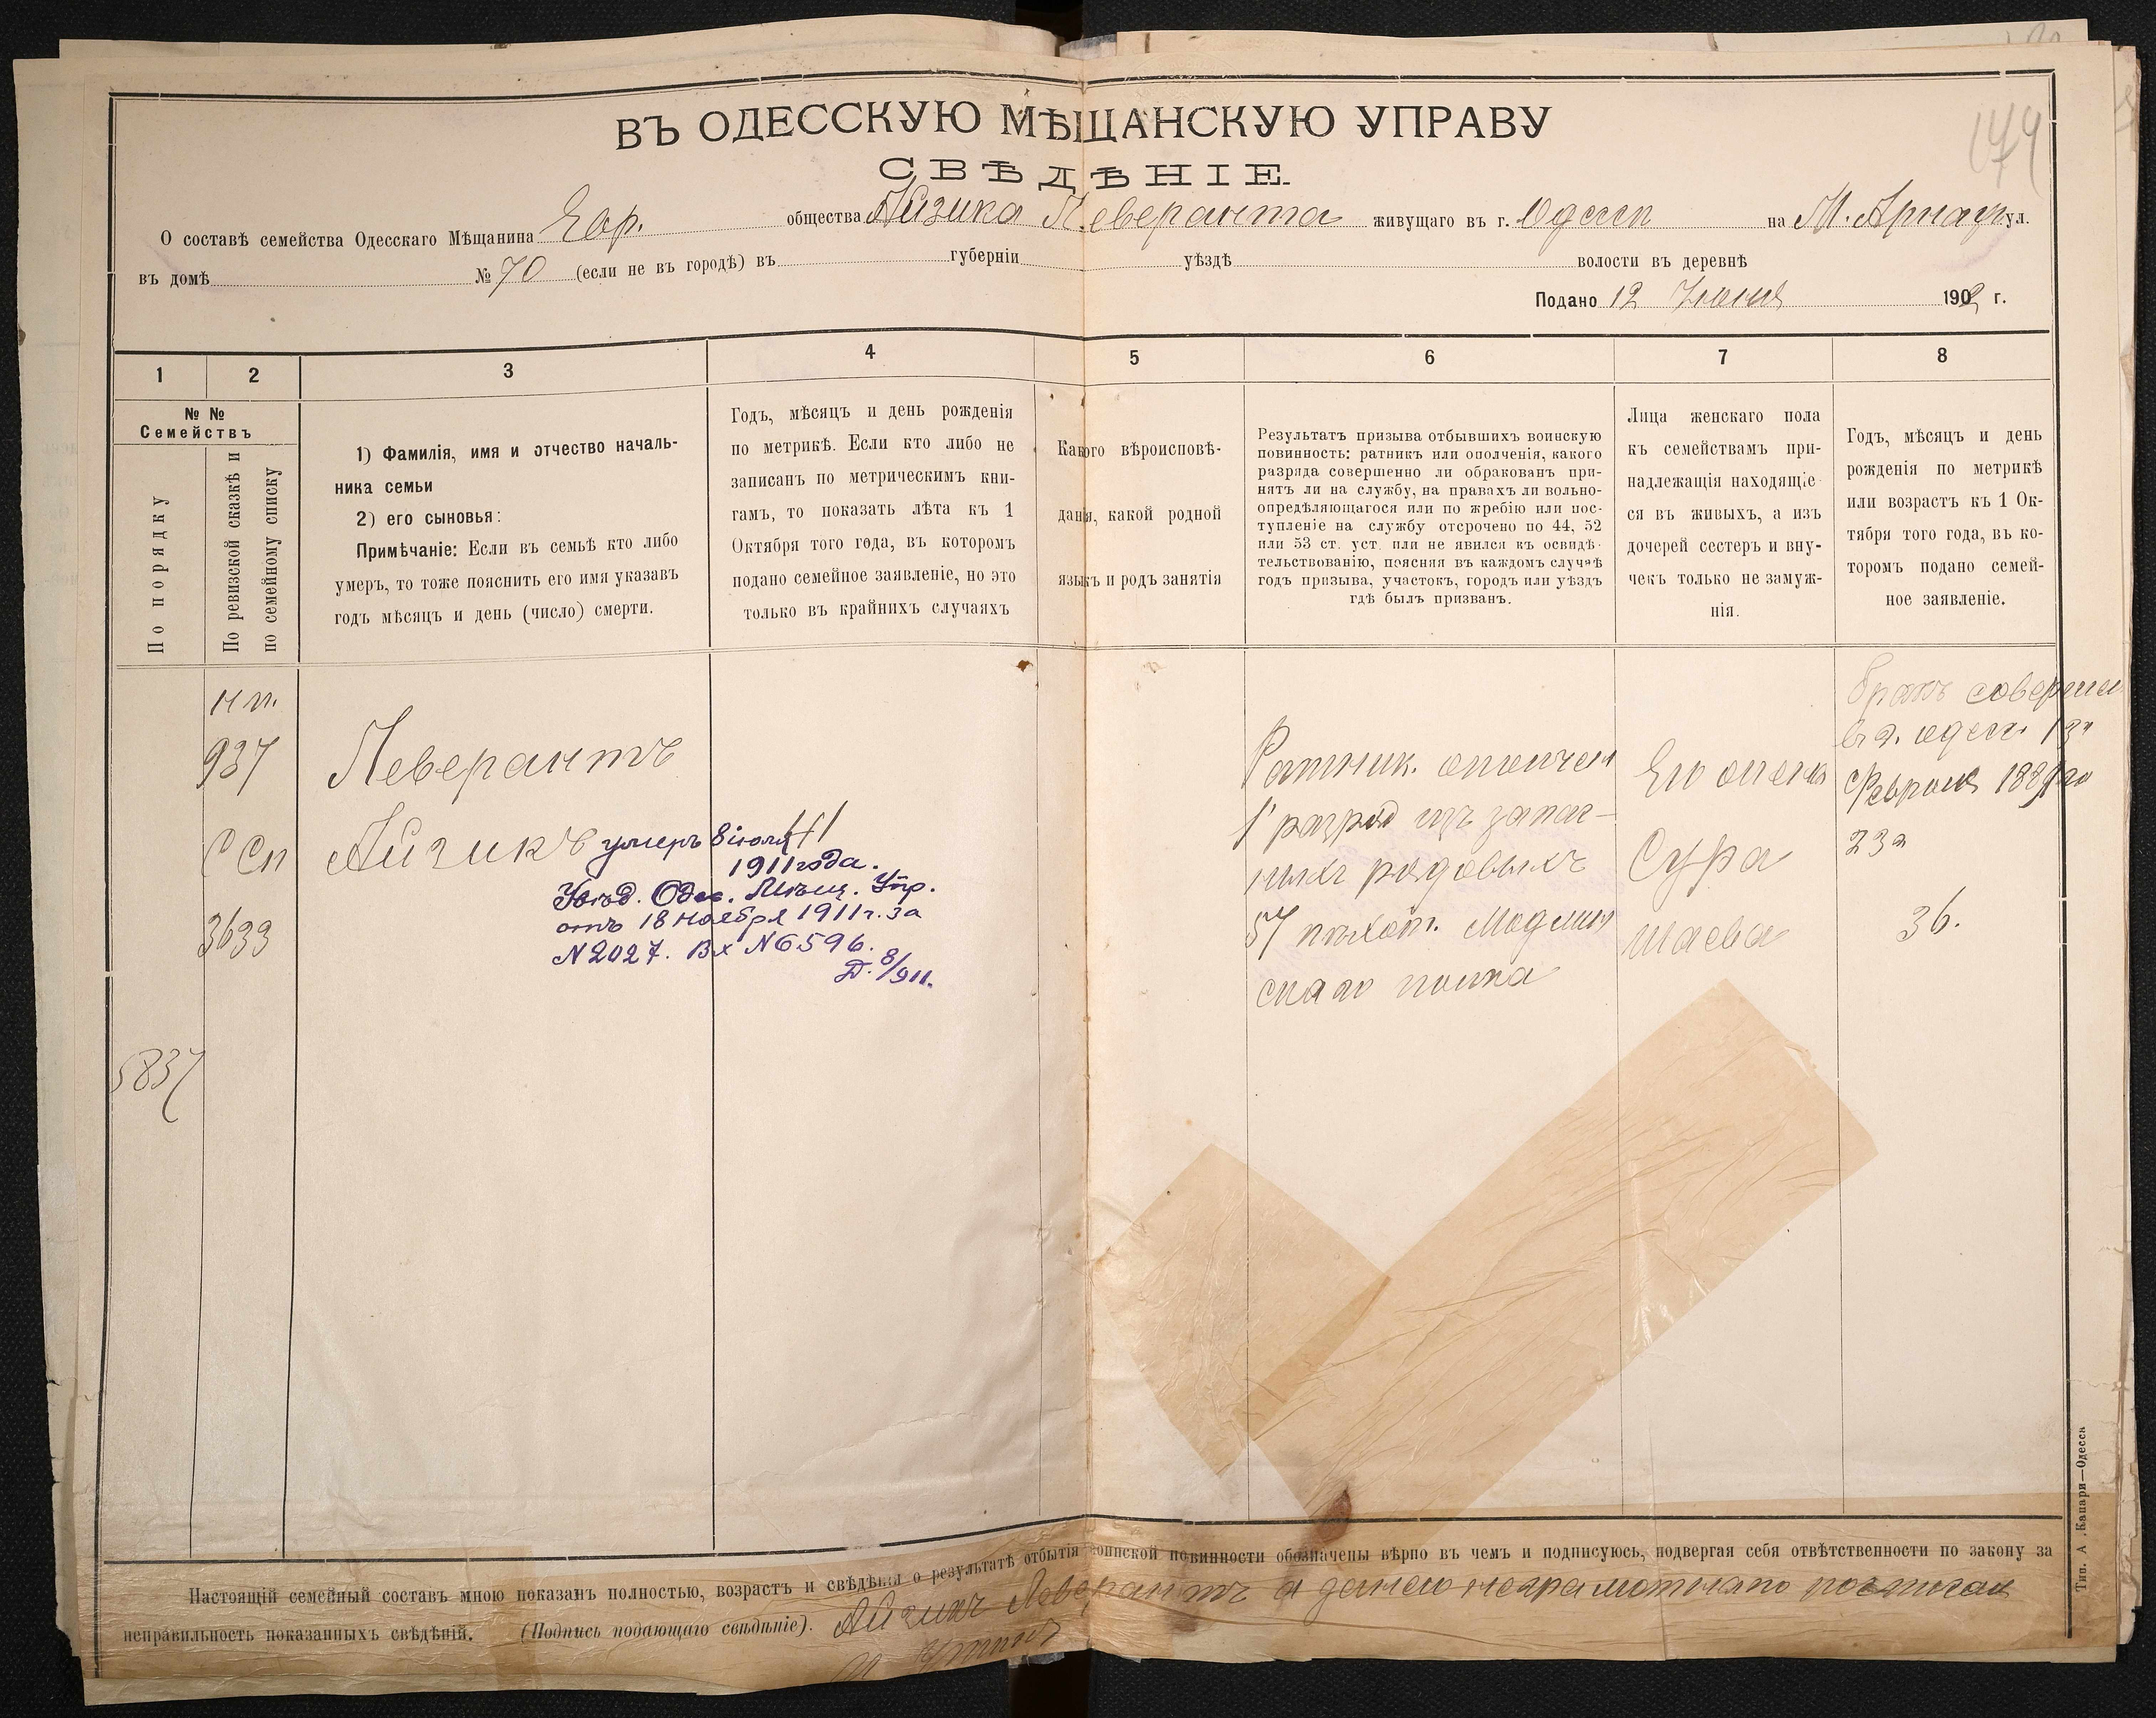 179
ВЪ ОДЕССКУЮ МѢЩАНСКУЮ УПРАВУ
СВѢДѢНІЕ.
О составѣ семейства Одесскаго Мѣщанина Евр. общества Айзика Леверанта живущаго въ г. Одессѣ на М. Арнаут ул.
въ домѣ № 70 (если не въ городѣ) въ губерніи уѣздѣ волости въ деревнѣ
Подано 12 Іюня 1902 г.
1 2 3 4 5 6 7 8
№ №
Семействъ
По порядку
По ревизской сказкѣ и
по семейному списку
1) Фамилія, имя и отчество началь-
ника семьи
2) его сыновья:
Примѣчаніе: Если въ семьѣ кто либо
умеръ, то тоже пояснить его имя указавъ
годъ мѣсяцъ и день (число) смерти.
Годъ, мѣсяцъ и день рожденія
по метрикѣ. Если кто либо не
записанъ по метрическимъ кни-
гамъ, то показать лѣта къ 1
Октября того года, въ которомъ
подано семейное заявленіе, но это
только въ крайнихъ случаяхъ
Какого вѣроисповѣ-
данія, какой родной
языкъ и родъ занятія
Результатъ призыва отбывшихъ воинскую
повинность: ратникъ или ополченія, какого
разряда совершенно ли обракованъ при-
нятъ ли на службу, на правахъ ли вольно-
опредѣляющагося или по жребію или пос-
тупленіе на службу отсрочено по 44, 52
или 53 ст. уст. или не явился къ освидѣ-
тельствованію, поясняя въ каждомъ случаѣ
годъ призыва, участокъ, городъ или уѣздъ
гдѣ былъ призванъ.
Лица женскаго пола
къ семействамъ при-
надлежащія находящіе-
ся въ живыхъ, а изъ
дочерей сестеръ и вну-
чекъ только не замуж-
нія.
Годъ, мѣсяцъ и день
рожденія по метрикѣ
или возрастъ къ 1 Ок-
тября того года, въ ко-
торомъ подано семей-
ное заявленіе.
нп.
937
С Сп
3633
5837
Леверантъ
Айзикъ 41
умеръ 8 іюля
1911 года.
Увѣд. Одес. Мѣщ. Упр.
отъ 18 Ноября 1911 г. за
N 2027. Вх N 6596.
Д. 8/911.
Ратник. ополчен
1 разряд изъ запас-
ныхъ рядовыхъ
57 пѣхот. Модлин
скаго полка
Его жена
Сура
Шаева
бракъ соверш
въ г. Одесс. 13
Февраля 1889 го
23а
36.
Настоящій семейный составъ мною показанъ полностью, возрастъ и свѣдѣнія о результатѣ отбытія воинской повинности обозначены вѣрно въ чемъ и подписуюсь, подвергая себя отвѣтственности по закону за
неправильность показанныхъ свѣдѣній. (Подпись подающаго свѣдѣніе). Айзикъ Леверантъ а за него неграмотнаго росписал
Тип. А. Капари—Одесса